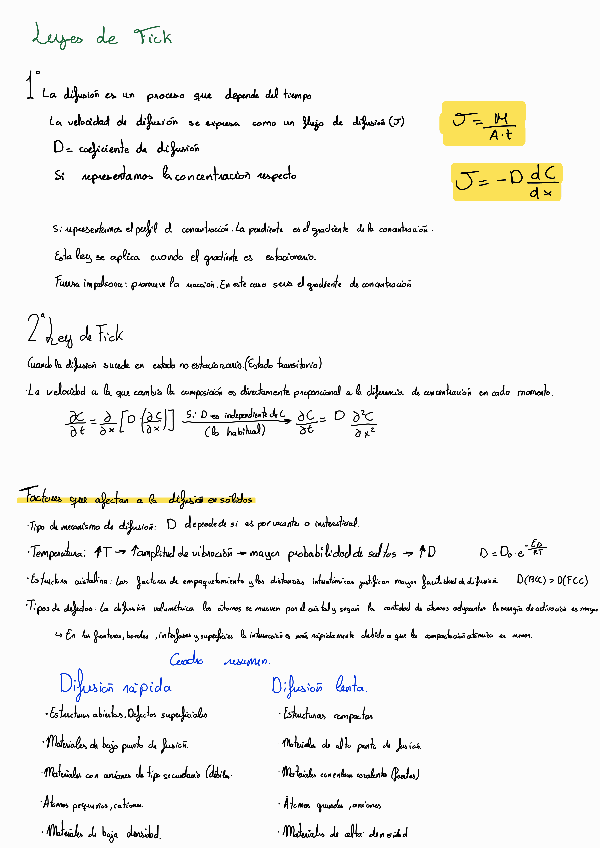 Leyes de Fick
1ª La difusión es un proceso que depende del tiempo
La velocidad de difusión se expresa como un flujo de difusión (J)
J = M / A·t
D = coeficiente de difusión
Si representamos la concentracion respecto
J = -D dC/dx
Si representamos el perfil d concentración. La pendiente es el gradiente de la concentración.
Esta ley se aplica cuando el gradiente es estacionario.
Fuerza impulsora: promueve la reaccion. En este caso sera el gradiente de concentración
2ª Ley de Fick
Cuando la difusión sucede en estado no estacionario. (Estado transitorio)
·La velocidad a la que cambia la composición es directamente proporcional a la diferencia de concentración en cada momento.
∂C/∂t = ∂/∂x [D (∂C/∂x)] Si D es independiente de C (lo habitual) → ∂C/∂t = D ∂²C/∂x²
Factores que afectan a la difusión en sólidos
·Tipo de mecanismo de difusión: D depende de si es por vacante o intersticial.
·Temperatura: ↑T → ↑amplitud de vibración → mayor probabilidad de saltos → ↑D D = D₀·e^(-ED/RT)
·Estructura cristalina: Los factores de empaquetamiento y las distancias interatómicas justifican mayor facilidad de difusión D(BCC) > D(FCC)
·Tipos de defectos. La difusión volumétrica los átomos se mueven por el cristal y según la cantidad de átomos adyacentes la energía de activacion es mayor
↳ En las fronteras, bordes, interfases y superficies la interacción es más rápidamente debido a que la compactación atómica es menor.
Cuadro resumen.
Difusión rápida
Difusión lenta.
·Estructuras abiertas. Defectos superficiales
·Estructuras compactas
·Materiales de bajo punto de fusión.
Materiales de alto punto de fusión.
·Materiales con uniones de tipo secundario (débiles.
·Materiales con enlace covalente (fuertes)
·Átomos pequeños, cationes.
·Átomos grandes, aniones
·Materiales de baja densidad.
·Materiales de alta densidad